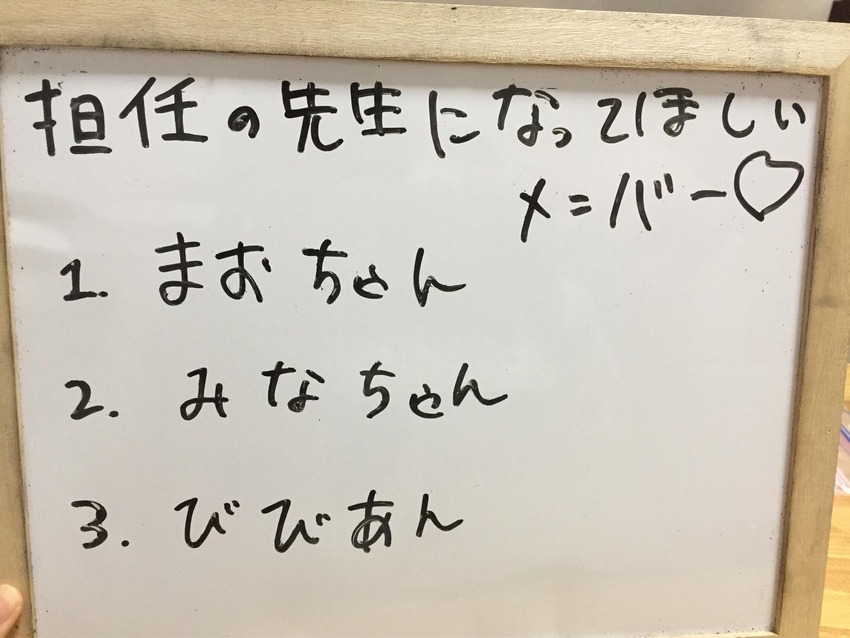 担任の先生になってほしい
メンバー♡
1. まおちゃん
2. みなちゃん
3. びびあん